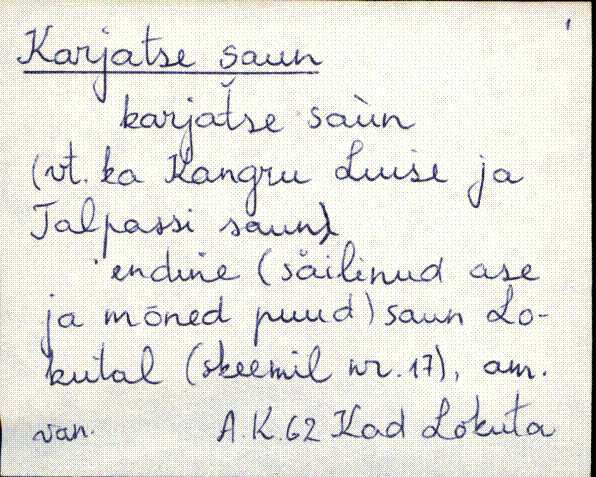 Karjatse saun
karjatse saùn
(vt. ka Kangru Luise ja
Talpassi saun)
endine (säilinud ase
ja mõned puud) saun Lo-
kutal (skeemil nr. 17), am.
van. A.K. 62 Kad Lokuta